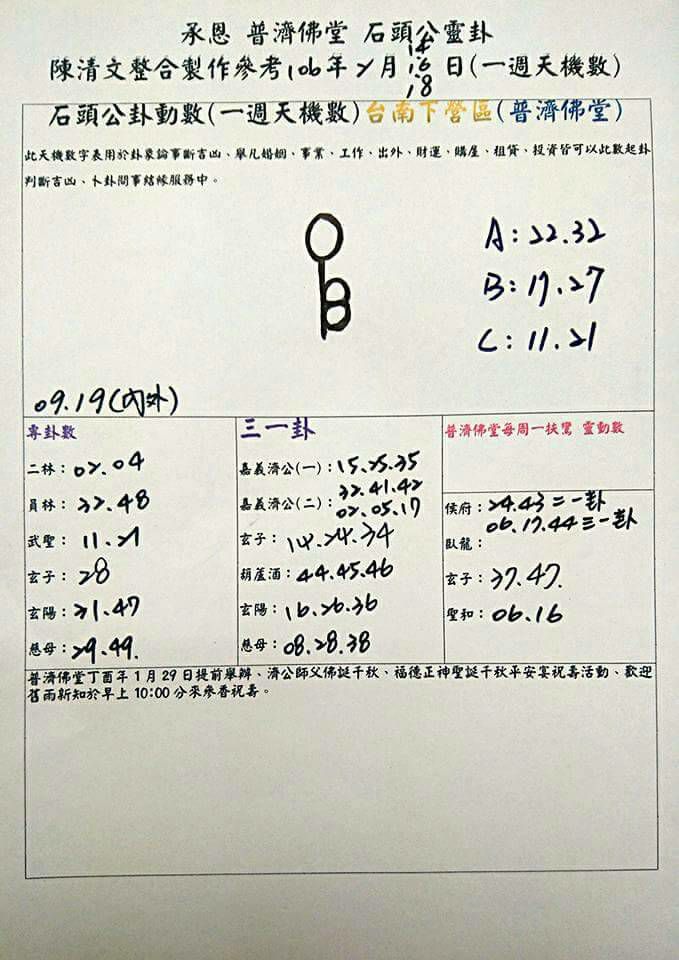 承恩 普濟佛堂 石頭公靈卦
14
陳清文整合製作參考106年2月16日(一週天機數)
18
石頭公卦動數(一週天機數)台南下營區(普濟佛堂)
此天機数字表用於卦象論事斷吉凶、舉凡婚姻、事業、工作、出外、財運、購屋、租賃、投資皆可以此數起卦
判斷吉凶、卜卦問事結緣服務中。
A:22.32
B:17.27
C:11.21
09.19(內外)
專卦數
二林:02.04
員林:32.48
武聖:11.21
玄子:28
玄陽:31.47
慈母:29.49.
三一卦
嘉義濟公(一):15.25.35
嘉義濟公(二):32.41.42
02.05.17
玄子:14.24.34
葫蘆酒:44.45.46
玄陽:16.26.36
慈母:08.28.38
普濟佛堂每周一扶鸞 靈動數
侯府:24.43二一卦
06.17.44三一卦
臥龍:
玄子:37.47.
聖和:06.16
普濟佛堂丁酉年1月29日提前舉辦、濟公師父佛誕千秋、福德正神聖誕千秋平安宴祝壽活動、歡迎
舊雨新知於早上10:00分來參香祝壽。